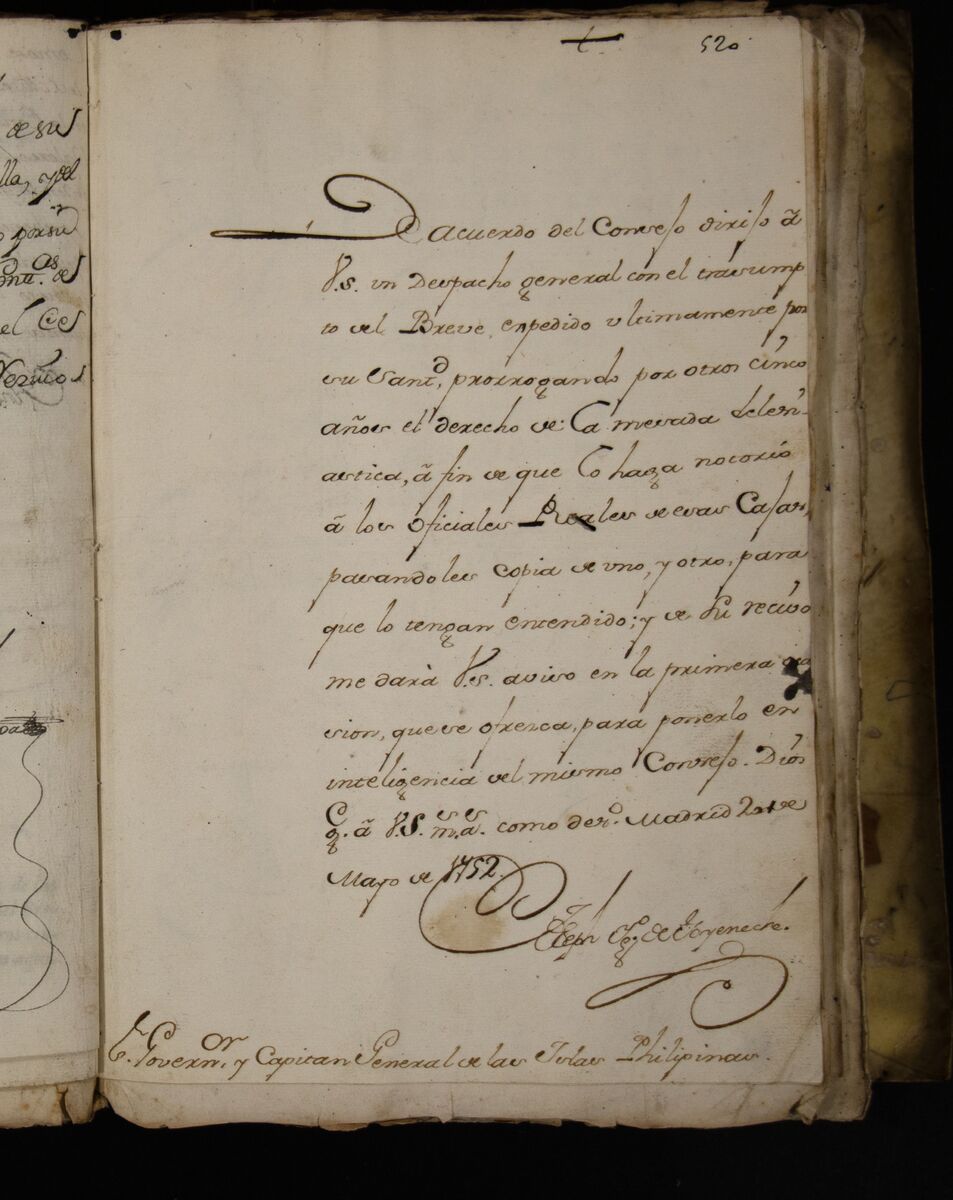 de sus
lla, y del
porsu
del
520
De acuerdo del Consejo dirijo â
V.S. un Despacho general con el trasump
to del Breve, expedido ultimamente por
su Santd, prorrogando por otros cinco
años el derecho de la mesada Eclesi-
astica, â fin de que lo haga notorio
â los Oficiales Reales de esas Cajas,
pasandoles copia de uno, y otro, para
que lo tengan entendido; y de su recivo
me darà V.S. aviso en la primera oca
sion, que se ofrezca, para ponerlo en
inteligencia del mismo Consejo. Dios
g.e â V.S. m.s a.s como deso. Madrid de
Mayo de 1752.
Joseph Ign.o de Goyeneche.
S.r Governor. y Capitan General de las Islas Philipinas.